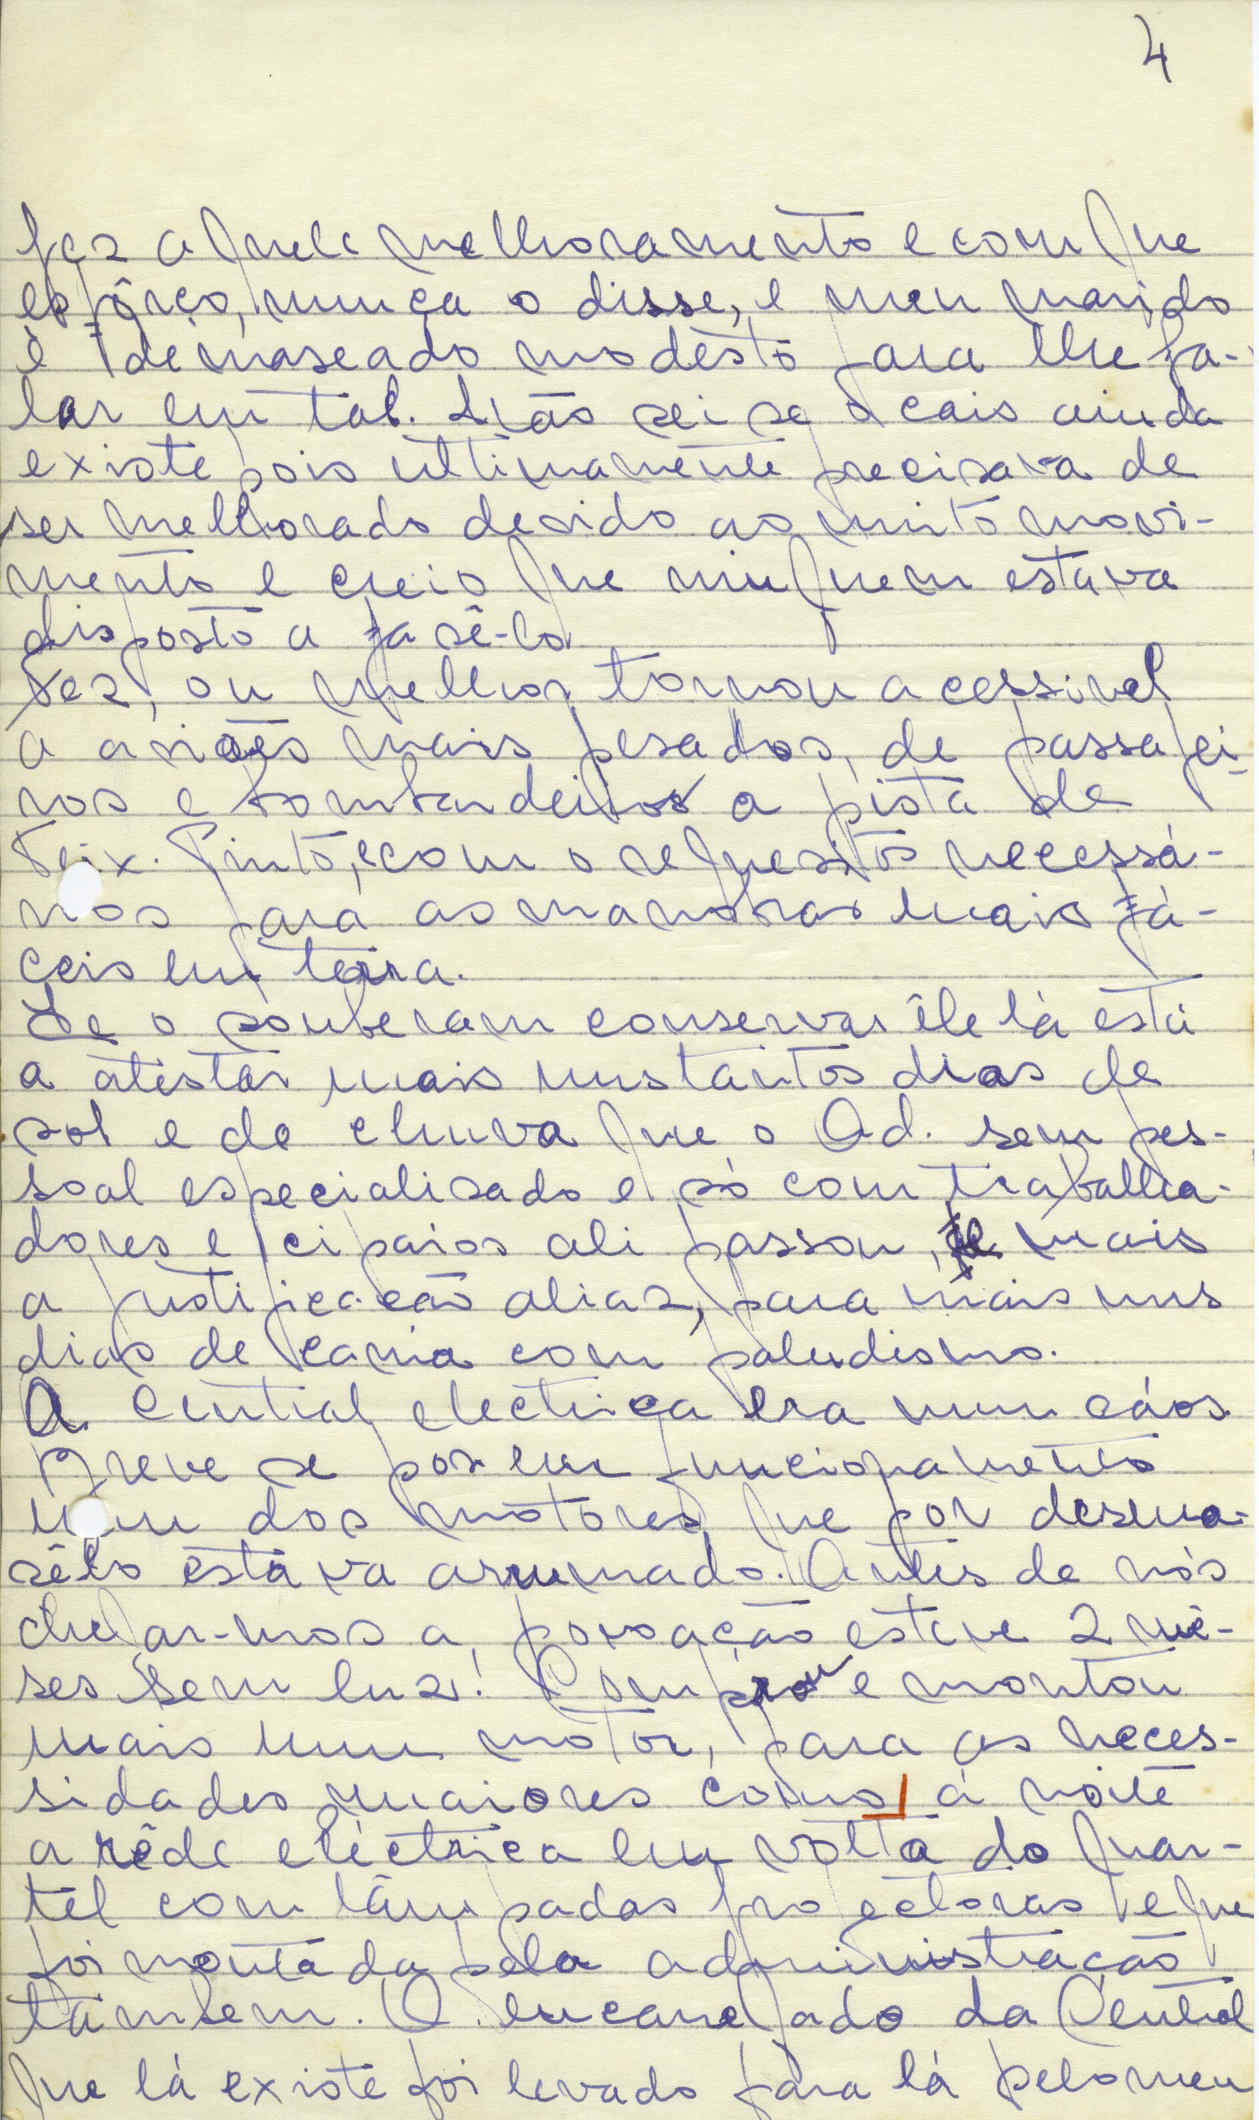 4
fez aquele melhoramento e com que
esfôrço, nunca o disse, e meu marido
é demaseado modesto para lhe fa-
lar em tal. Não sei se o cais ainda
existe pois ultimamente precisava de
ser melhorado devido ao muito movi-
mento e creio que ninguem estava
disposto a fasê-lo.
Fez, ou melhor, tornou acessivel
a aviões mais pesados, de passagei-
ros e bombardeiros a pista de
Teix. Pinto, e com o requesitos necessá-
rios para as manobras mais fá-
ceis em terra.
Se o souberam conservar êle lá está
a atestar mais uns tantos dias de
sol e de chuva que o Ad. sem pes-
soal especialisado e só com trabalha-
dores e cipaios ali passou, mais
a justificação aliaz, para mais uns
dias de cama com paludismo.
A Central electrica era num cáos.
Breve se pos em funcionamento
um dos motores que por desma-
sêlo estava arrumado. Antes de nós
chegar-mos a povoação esteve 2 mê-
ses sem luz! Comprou e montou
mais um motor, para as neces-
sidades maiores como á noite
a rêde eléctrica em volta do quar-
tel com lâmpadas projectoras e que
foi montada pela administração
tambem. O encarregado da Central
que lá existe foi levado para lá pelo meu